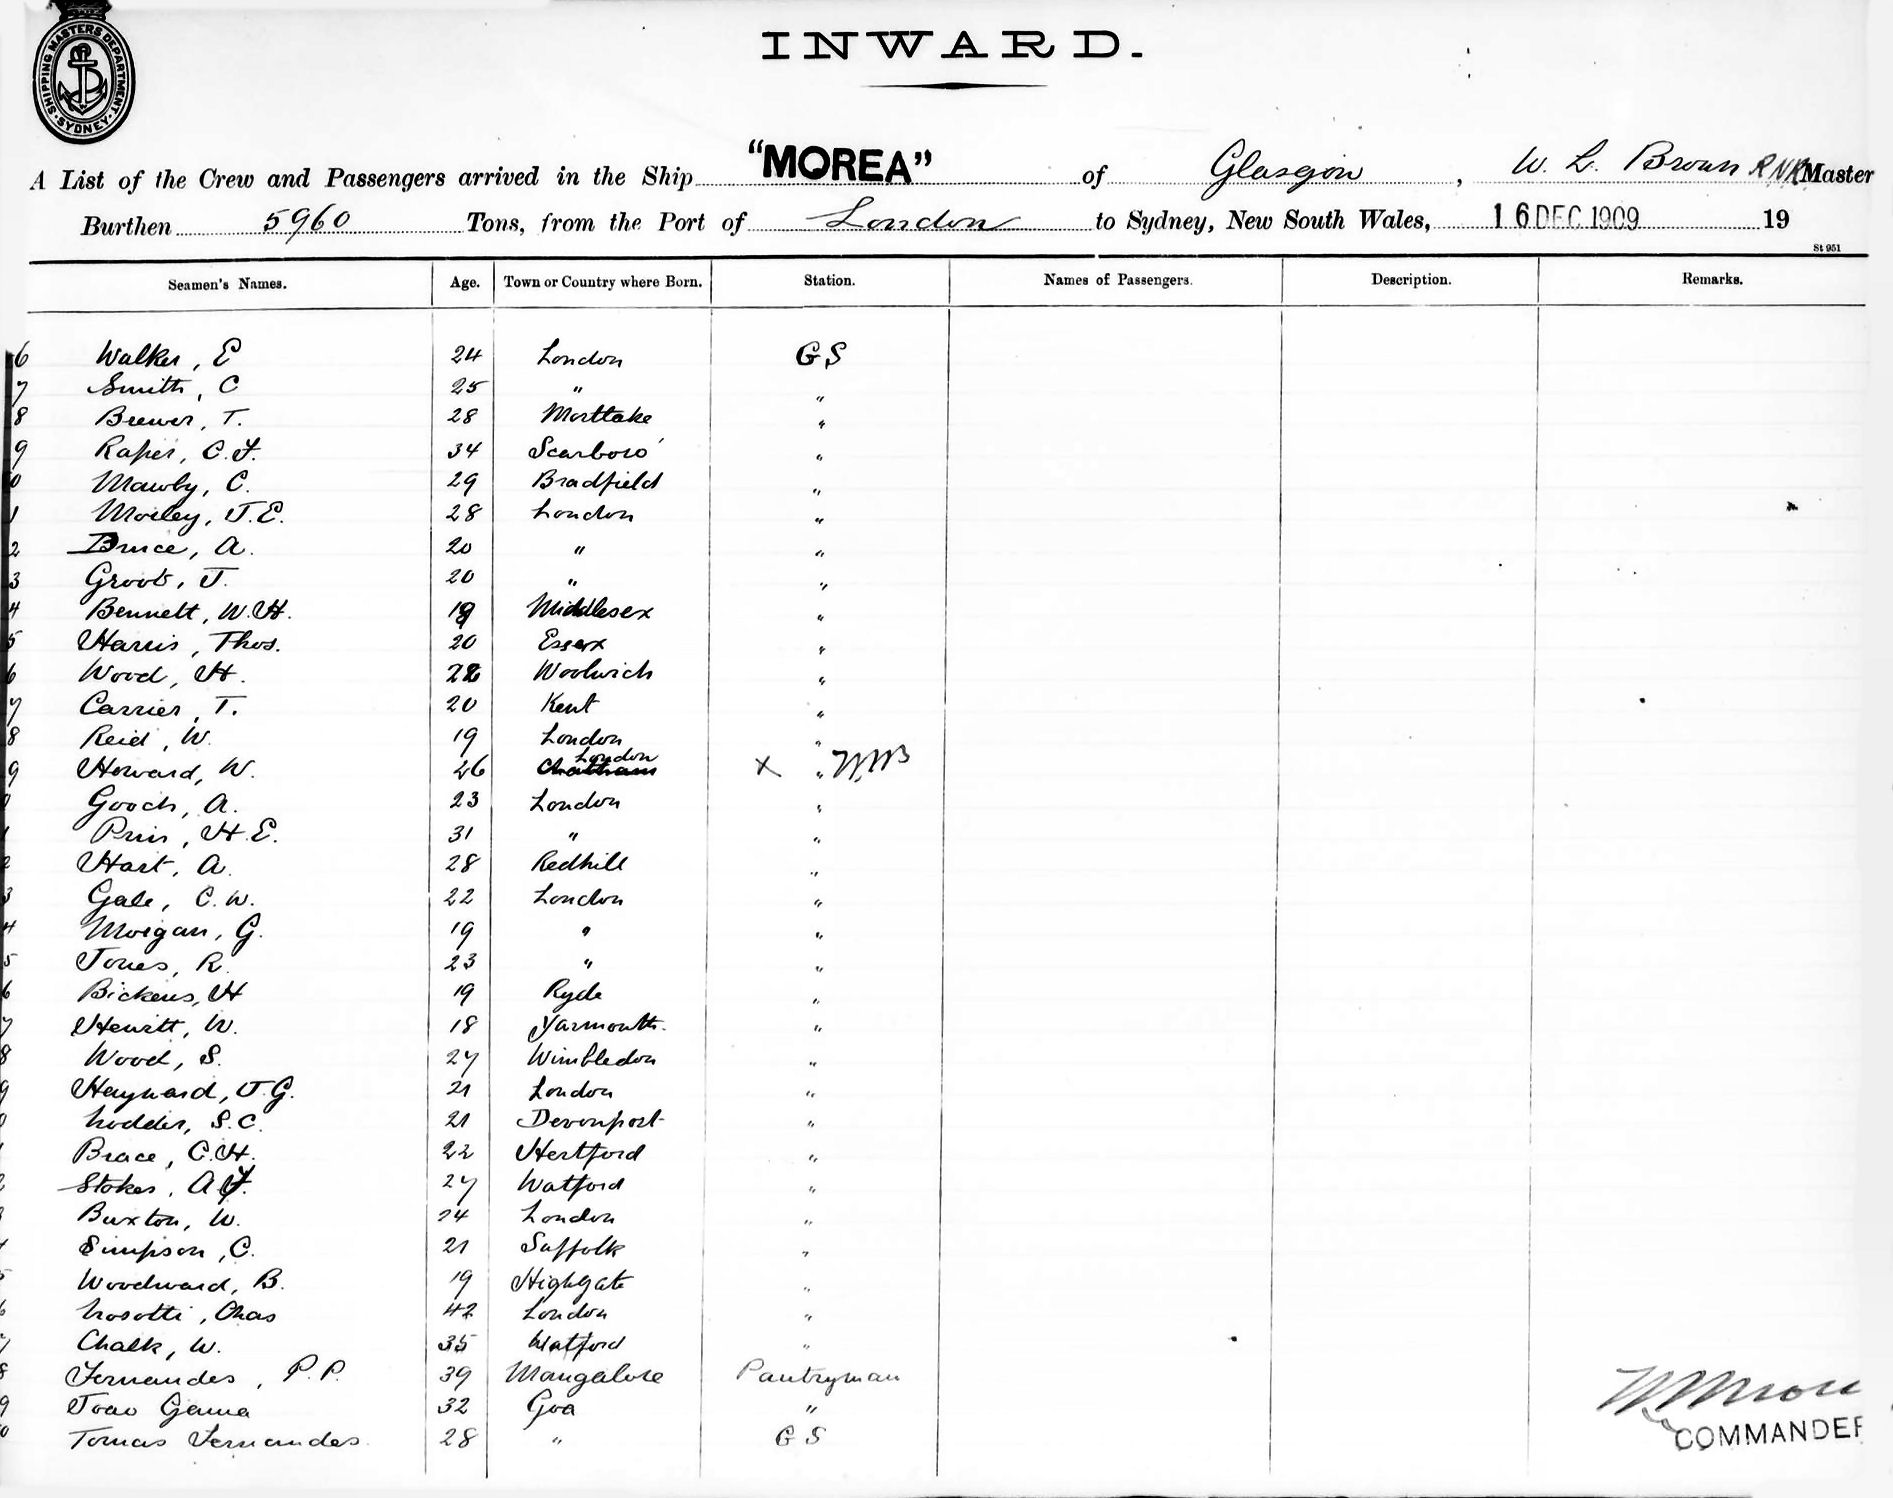 SHIPPING MASTERS DEPARTMENT
SYDNEY
INWARD.
A List of the Crew and Passengers arrived in the Ship "MOREA" of Glasgow, W. L. Brown RNR Master
Burthen 5960 Tons, from the Port of London to Sydney, New South Wales, 16 DEC 1909 19
St 951
Seamen's Names. Age. Town or Country where Born. Station. Names of Passengers. Description. Remarks.
6 Walker, E 24 London GS
7 Smith, C 25 " "
8 Brewer, T. 28 Mortlake "
9 Raper, C.F. 34 Scarboro' "
0 Mawby, C. 29 Bradfield "
1 Morley, J.E. 28 London "
2 Bruce, A. 20 " "
3 Groot, J. 20 " "
4 Bennett, W.H. 19 Middlesex "
5 Harris, Thos. 20 Essex "
6 Wood, H. 22 Woolwich "
7 Carrier, T. 20 Kent "
8 Reid, W. 19 London "
9 Howard, W. 26 Chatham London X " WMB
Gooch, A. 23 London "
1 Prin, H.E. 31 " "
2 Hart, A. 28 Redhill "
3 Gale, C.W. 22 London "
4 Morgan, G. 19 " "
5 Jones, R. 23 " "
6 Bickens, H 19 Ryde "
7 Hewitt, W. 18 Yarmouth "
8 Wood, S. 27 Wimbledon "
9 Hayward, J.G. 21 London "
0 Hodder, S.C. 21 Devonport "
Brace, C.H. 22 Hertford "
Stokes, A.F. 27 Watford "
Buxton, W. 24 London "
Simpson, C. 21 Suffolk "
5 Woodward, B. 19 Highgate "
6 Nosotti, Chas 42 London "
7 Chalk, W. 35 Watford "
8 Fernandes, P.P. 39 Mangalore Pantryman
9 Joao Gama 32 Goa "
0 Tomas Fernandes 28 " GS
COMMANDER